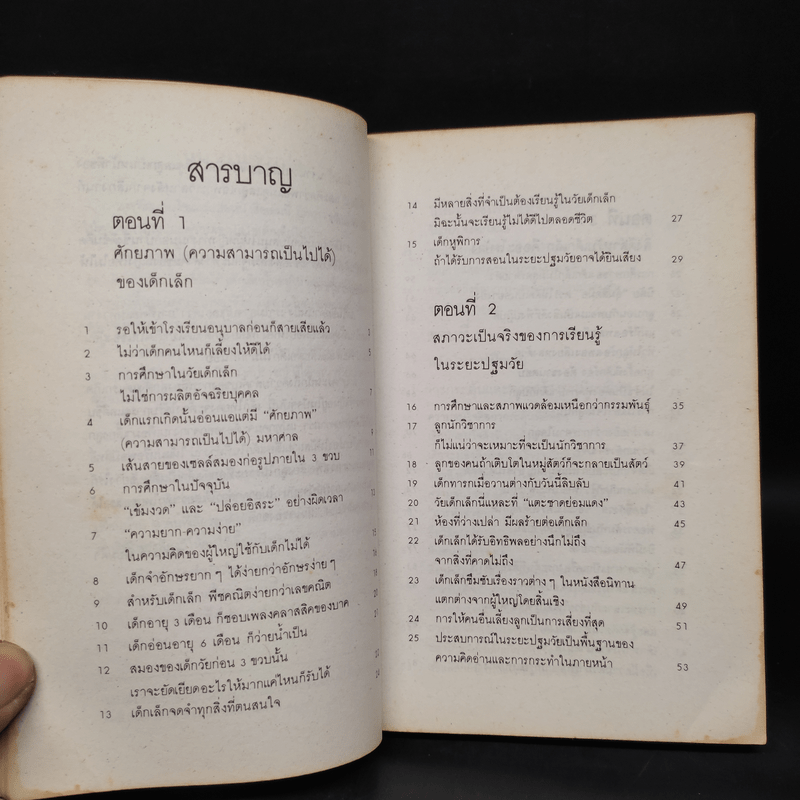 สารบาญ
ตอนที่ 1
ศักยภาพ (ความสามารถเป็นไปได้)
ของเด็กเล็ก
1 รอให้เข้าโรงเรียนอนุบาลก่อนก็สายเสียแล้ว 3
2 ไม่ว่าเด็กคนไหนก็เลี้ยงให้ดีได้ 5
3 การศึกษาในวัยเด็กเล็ก
ไม่ใช่การผลิตอัจฉริยบุคคล 7
4 เด็กแรกเกิดนั้นอ่อนแอแต่มี "ศักยภาพ"
(ความสามารถเป็นไปได้) มหาศาล 9
5 เส้นสายของเซลล์สมองก่อรูปภายใน 3 ขวบ 11
6 การศึกษาในปัจจุบัน
"เข้มงวด" และ "ปล่อยอิสระ" อย่างผิดเวลา
7 "ความยาก-ความง่าย"
ในความคิดของผู้ใหญ่ใช้กับเด็กไม่ได้
8 เด็กจำอักษรยาก ๆ ได้ง่ายกว่าอักษรง่าย ๆ
9 สำหรับเด็กเล็ก พีชคณิตง่ายกว่าเลขคณิต
10 เด็กอายุ 3 เดือน ก็ชอบเพลงคลาสสิคของบาค
11 เด็กอ่อนอายุ 6 เดือน ก็ว่ายน้ำเป็น
12 สมองของเด็กวัยก่อน 3 ขวบนั้น
เราจะยัดเยียดอะไรให้มากแค่ไหนก็รับได้
13 เด็กเล็กจดจำทุกสิ่งที่ตนสนใจ
14 มีหลายสิ่งที่จำเป็นต้องเรียนรู้ในวัยเด็กเล็ก
มิฉะนั้นจะเรียนรู้ไม่ได้ดีไปตลอดชีวิต 27
15 เด็กหูพิการ
ถ้าได้รับการสอนในระยะปฐมวัยอาจได้ยินเสียง 29
ตอนที่ 2
สภาวะเป็นจริงของการเรียนรู้
ในระยะปฐมวัย
16 การศึกษาและสภาพแวดล้อมเหนือกว่ากรรมพันธุ์ 35
17 ลูกนักวิชาการ
ก็ไม่แน่ว่าจะเหมาะที่จะเป็นนักวิชาการ 37
18 ลูกของคนถ้าเติบโตในหมู่สัตว์ก็จะกลายเป็นสัตว์ 39
19 เด็กทารกเมื่อวานต่างกับวันนี้ลิบลับ 41
20 วัยเด็กเล็กนี่แหละที่ "แตะชาดย่อมแดง" 43
21 ห้องที่ว่างเปล่า มีผลร้ายต่อเด็กเล็ก 45
22 เด็กเล็กได้รับอิทธิพลอย่างนึกไม่ถึง
จากสิ่งที่คาดไม่ถึง 47
23 เด็กเล็กซึมซับเรื่องราวต่าง ๆ ในหนังสือนิทาน
แตกต่างจากผู้ใหญ่โดยสิ้นเชิง 49
24 การให้คนอื่นเลี้ยงลูกเป็นการเสี่ยงที่สุด 51
25 ประสบการณ์ในระยะปฐมวัยเป็นพื้นฐานของ
ความคิดอ่านและการกระทำในภายหน้า 53